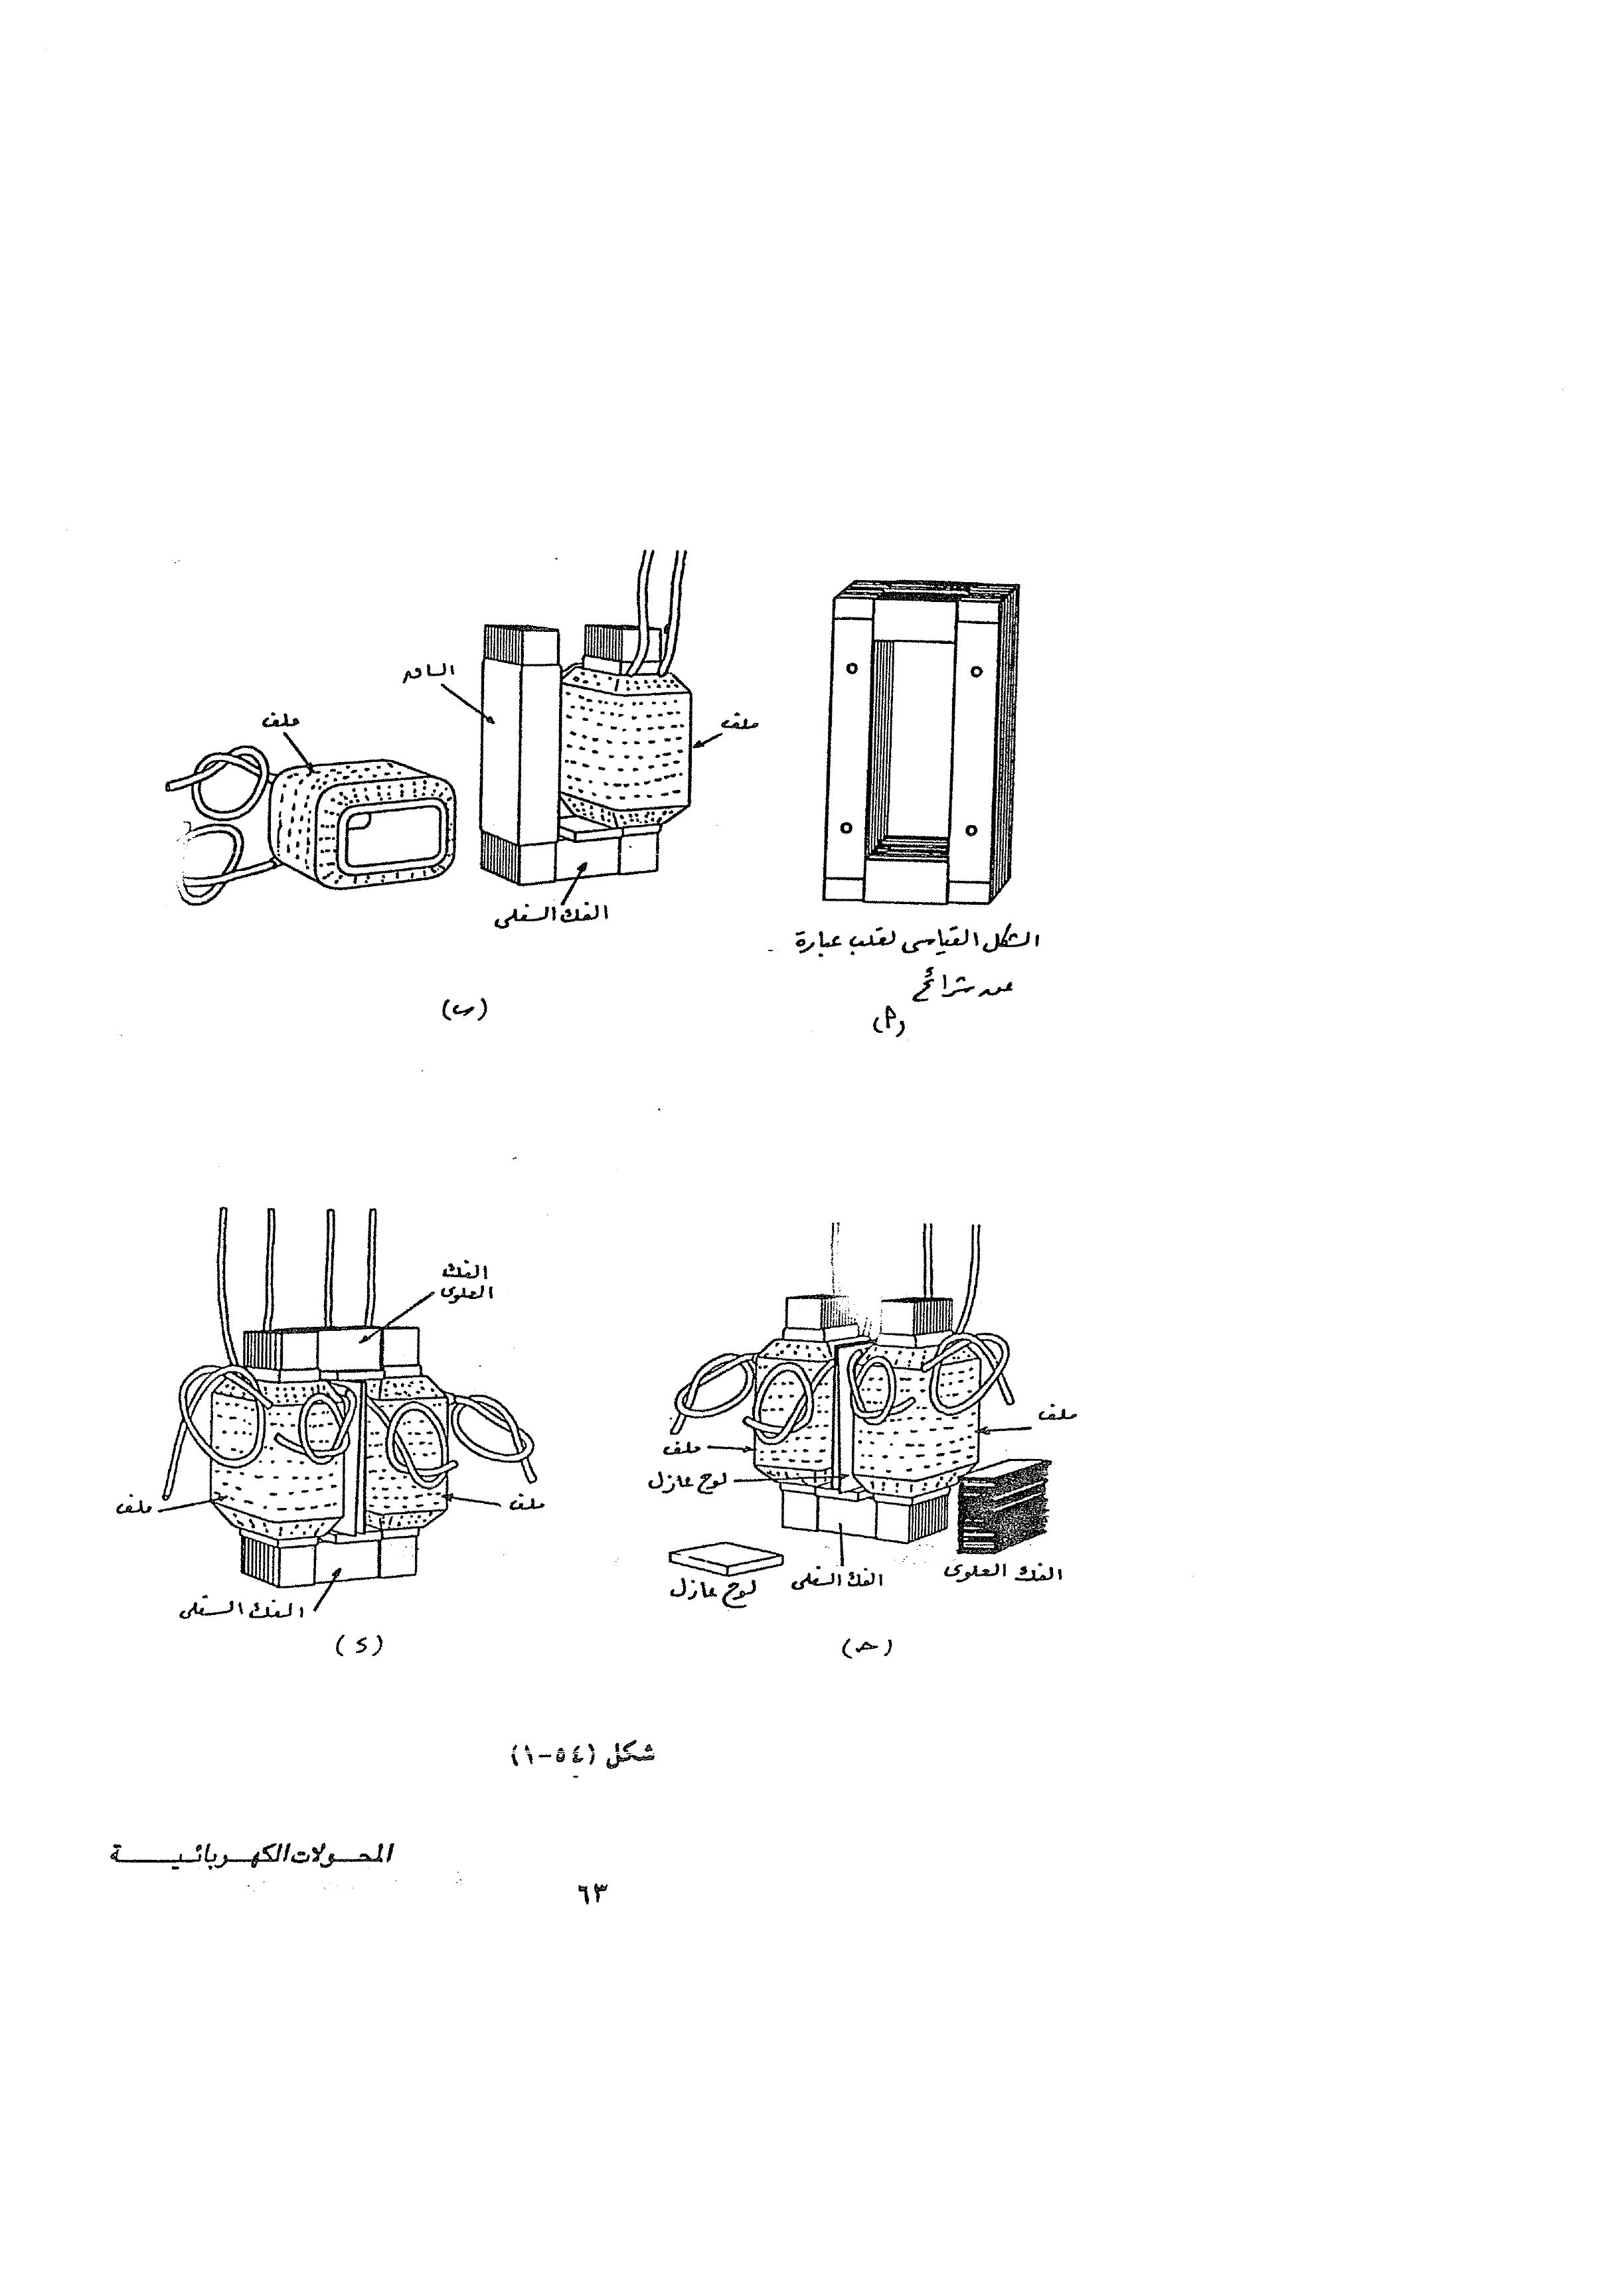 الساق
ملف
ملف
الفك السفلى
الشكل القياسى لقلب عبارة
عن شرائح
(أ)
(ب)
الفك
العلوى
ملف
ملف
الفك السفلى
(د)
ملف
ملف
لوح عازل
لوح عازل
الفك السفلى
الفك العلوى
(حـ)
شكل (٥٤-١)
المحولات الكهربائية
٦٣